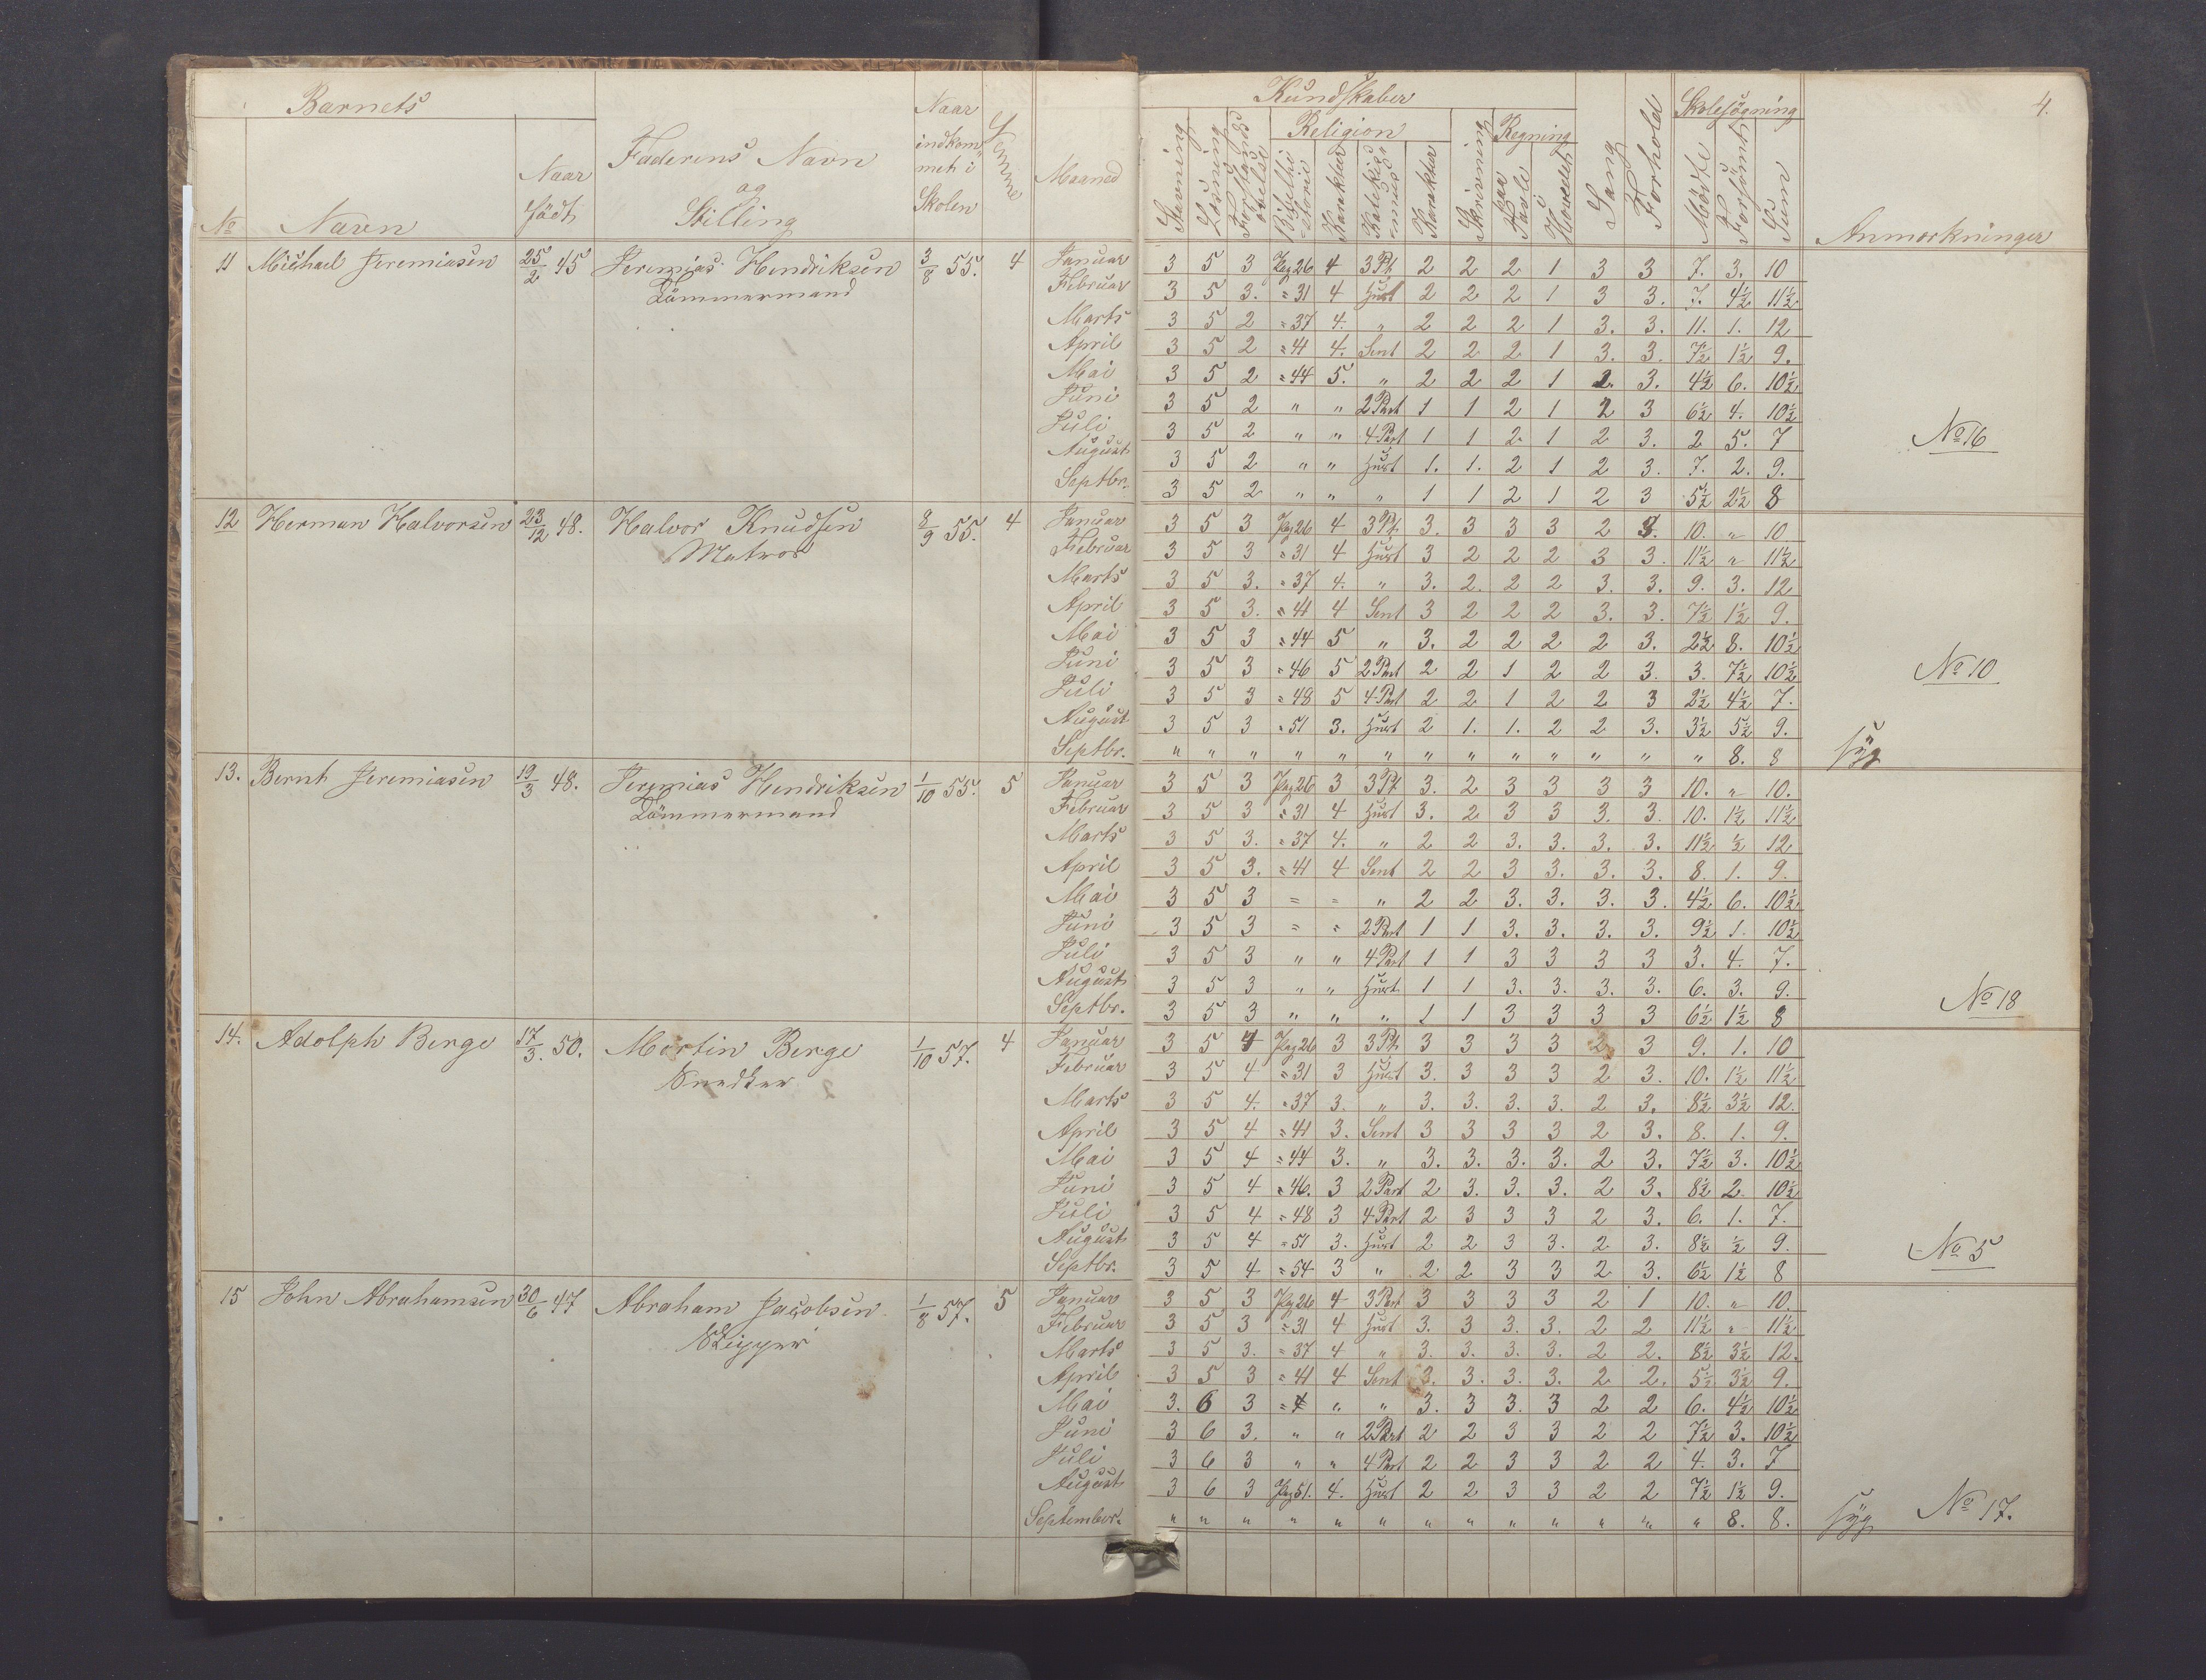 Barnets
Naar
Kundskaber
Skolesögning
4.
Faderens Navn
og
Stilling
Naar
indkom
met i
Skolen
Stemme
Maaned
Religion
Regning
Naar
født
No
Navn
Stavning
Læsning
Karakter
Karakter
Skrivning
paa
Tavle
i
Hovedet
Sang
Forhold
Mødte
Forsömt
Sum
Anmærkninger
11 Michael Jeremiasen 25/2 45 Jeremias Hendriksen 3/8 55. 4 Januar 3 5 3 Pag 26 4 3 Pt. 2 2 2 1 3 3 7. 3. 10
Tömmermand
Februar 3 5 3. " 31 4 Hust 2 2 2 1 3 3. 7. 4½ 11½
Marts 3 5 2 " 37 4. " 2 2 2 1 3. 3. 11. 1. 12
April 3 5 2 " 41 4. Sent 2 2 2 1 3. 3. 7½ 1½ 9.
Mai 3 5 2 " 44 5. " 2 2 2 1 2. 3. 4½ 6. 10½
Juni 3 5 2 " " 2 Part 1 1 2 1 2 3 6½ 4. 10½
Juli 3 5 2 " " 4 Part 1 1 2 1 2 3. 2 5. 7
No 16
August 3 5 2 " " Hust 1. 1. 2 1 2 3. 7. 2. 9.
Septbr. 3 5 2 " " " 1 1 2 1 2 3 5½ 2½ 8
12 Herman Halvorsen 23/12 48. Halvor Knudsen 8/9 55. 4 Januar 3 5 3 Pag 26 4 3 Pt. 3. 3 3 3 2 3. 10. " 10.
Matros
Februar 3 5 3 " 31 4 Hust 3 2 2 2 3 3. 11½ " 11½
Marts 3 5 3. " 37 4. " 3. 2. 2 2 3. 3. 9. 3. 12
April 3 5 3. " 41 4 Sent 3 2 2 2 3. 3. 7½ 1½ 9.
Mai 3 5 3 " 44 5 " 3. 2 2 2 2 3. 2½ 8. 10½
Juni 3 5 3 " 46 5 2 Part 2 2 1 2 2 3. 3. 7½ 10½
No 10
Juli 3 5 3 " 48 5 4 Part 2 2 1 2 2 3 2½ 4½ 7.
August 3 5 3 " 51 3. Hust 2 1. 1. 2 2 3. 3½ 5½ 9.
Septbr. " " " " " " " " " " " " " 8. 8 syg
13. Bernt Jeremiasen 19/3 48. Jeremias Hendriksen 1/10 55. 5 Januar 3 5 3 Pag 26 3 3 Pt. 3. 2 3 3 3 3 10. " 10.
Tömmermand
Februar 3 5 3 " 31 4 Hust 3. 2 3 3 3. 3. 10. 1½ 11½
Marts 3 5 3. " 37 4. " 2 2 3. 3. 3. 3. 11½ ½ 12
April 3 5 3. " 41 4 Sent 2 2 3 3. 3. 3. 8. 1. 9.
Mai 3 5 3 " " " 2 2 3. 3. 3. 3. 4½ 6. 10½
Juni 3 5 3 " " 2 Part 1 1 3. 3. 3. 3. 9½ 1. 10½
Juli 3 5 3 " " 4 Part 1 1 3 3 3 3 3. 4. 7.
August 3 5 3 " " Hust 1 1 3. 3. 3. 3. 6. 3. 9.
No 18
Septbr. 3 5 3 " " " 1 1 3 3 3 3 6½ 1½ 8
14. Adolph Berge 17/3. 50. Martin Berge 1/10 57. 4 Januar 3 5 4 Pag 26 3 3 Pt. 3 3 3 3 2 3 9. 1. 10
Snedker
Februar 3 5 4 " 31 3 Hust 3. 3 3 3 2 3. 10. 1½ 11½
Marts 3 5 4. " 37 3. " 3. 3. 3. 3. 2 3. 8½ 3½ 12.
April 3 5 4 " 41 3. Sent 3 3 3 3 2 3. 8. 1. 9.
Mai 3 5 4 " 44 3. " 3. 3. 3. 3. 2 3. 7½ 3. 10½
Juni 3 5 4 " 46. 3 2 Part 2 3. 3. 3. 2 3. 8½ 2. 10½
Juli 3 5 4 " 48 3 4 Part 2 3 3 3 2 3. 6. 1. 7.
August 3 5 4 " 51 3. Hust 2 2 3 3. 2 3. 8½ ½ 9.
No 5
Septbr. 3 5 4 " 54 3 " 2 2 3 3 2 3. 6½ 1½ 8
15 John Abrahamsen 30/6 47 Abraham Jacobsen 1/8 57. 5 Januar 3 5 3 Pag 26 4 3 Part 3 3 3 3 2 1 10. " 10.
Skipper
Februar 3 5 3 " 31 4 Hust 3. 3 3. 3. 2 2 11½ " 11½
Marts 3 5 3. " 37 4 " 3. 3. 3. 3. 2 2. 8½ 3½ 12.
April 3 5 3 " 41 4 Sent 3. 3. 3. 3. 2 2. 5½ 3½ 9.
Mai 3. 6 3 " " " 3. 3 3. 3 2 2 6. 4½ 10½
Juni 3 6 3. " " 2 Part 2 2 3 3 2 2 7½ 3. 10½
Juli 3 6 3 " " 4 Part 2 2 3 3 2 2 4. 3. 7
August 3 6 3 Pag 51. 4. Hust 2 2 3 3 2 2 7½ 1½ 9.
September. " " " " " " " " " " " " " 8. 8. syg No 17.